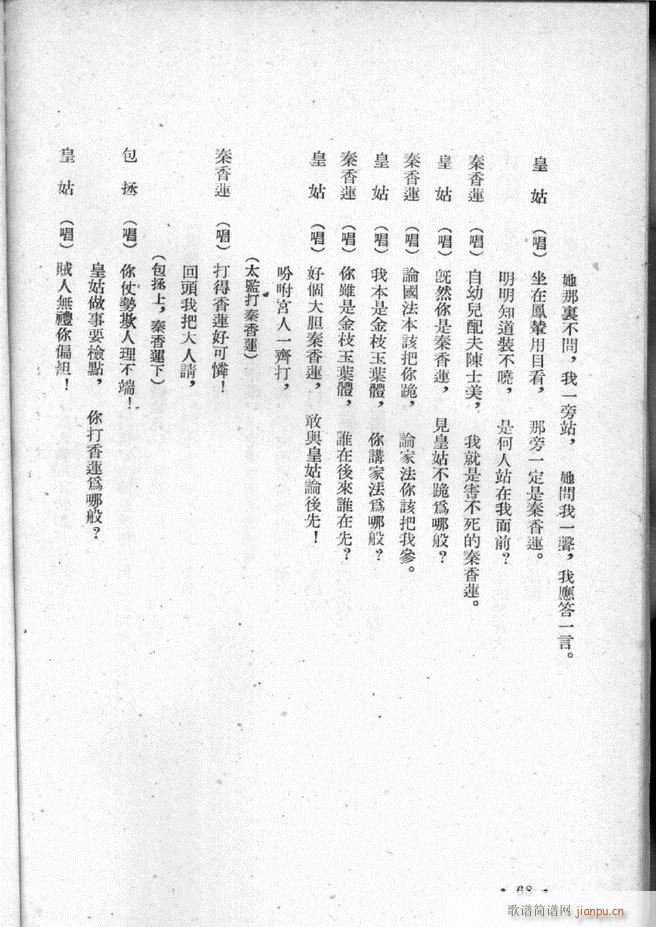 她那裏不問，我一旁站，　她問我一聲，我應答一言。
皇　姑　（唱）坐在鳳輦用目看，　那旁一定是秦香蓮。
明明知道裝不曉，　是何人站在我面前？
秦香蓮　（唱）自幼兒配夫陳士美，　我就是害不死的秦香蓮。
皇　姑　（唱）旣然你是秦香蓮，　見皇姑不跪爲哪般？
秦香蓮　（唱）論國法本該把你跪，　論家法你該把我參。
皇　姑　（唱）我本是金枝玉葉體，　你講家法爲哪般？
秦香蓮　（唱）你雖是金枝玉葉體，　誰在後來誰在先？
皇　姑　（唱）好個大胆秦香蓮，　敢與皇姑論後先！
吩咐宮人一齊打，
（太監打秦香蓮）
秦香蓮　（唱）打得香蓮好可憐！
回頭我把大人請，
（包拯上，秦香蓮下）
包　拯　（唱）你仗勢欺人理不端！
皇姑做事要檢點，　你打香蓮爲哪般？
皇　姑　（唱）賊人無禮你偏袒！
• 68 •
歌谱简谱网 jianpu.cn